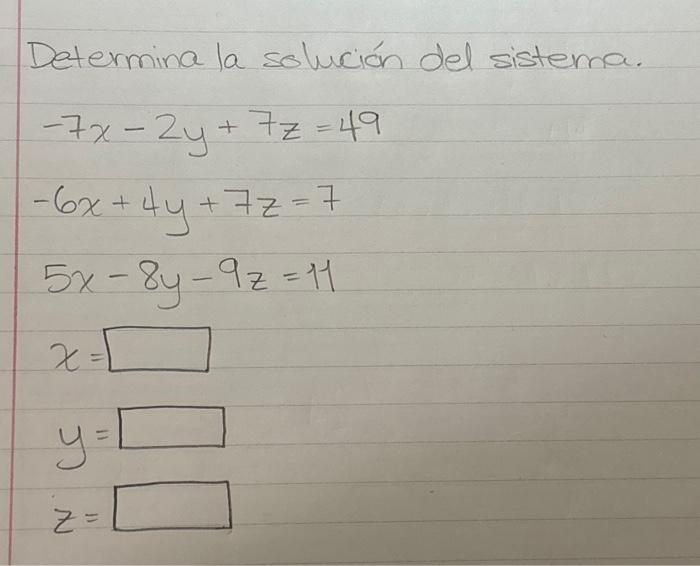 Determina la solución del sistema.
-7x - 2y + 7z = 49
-6x + 4y + 7z = 7
5x - 8y - 9z = 11
x =
y =
z =